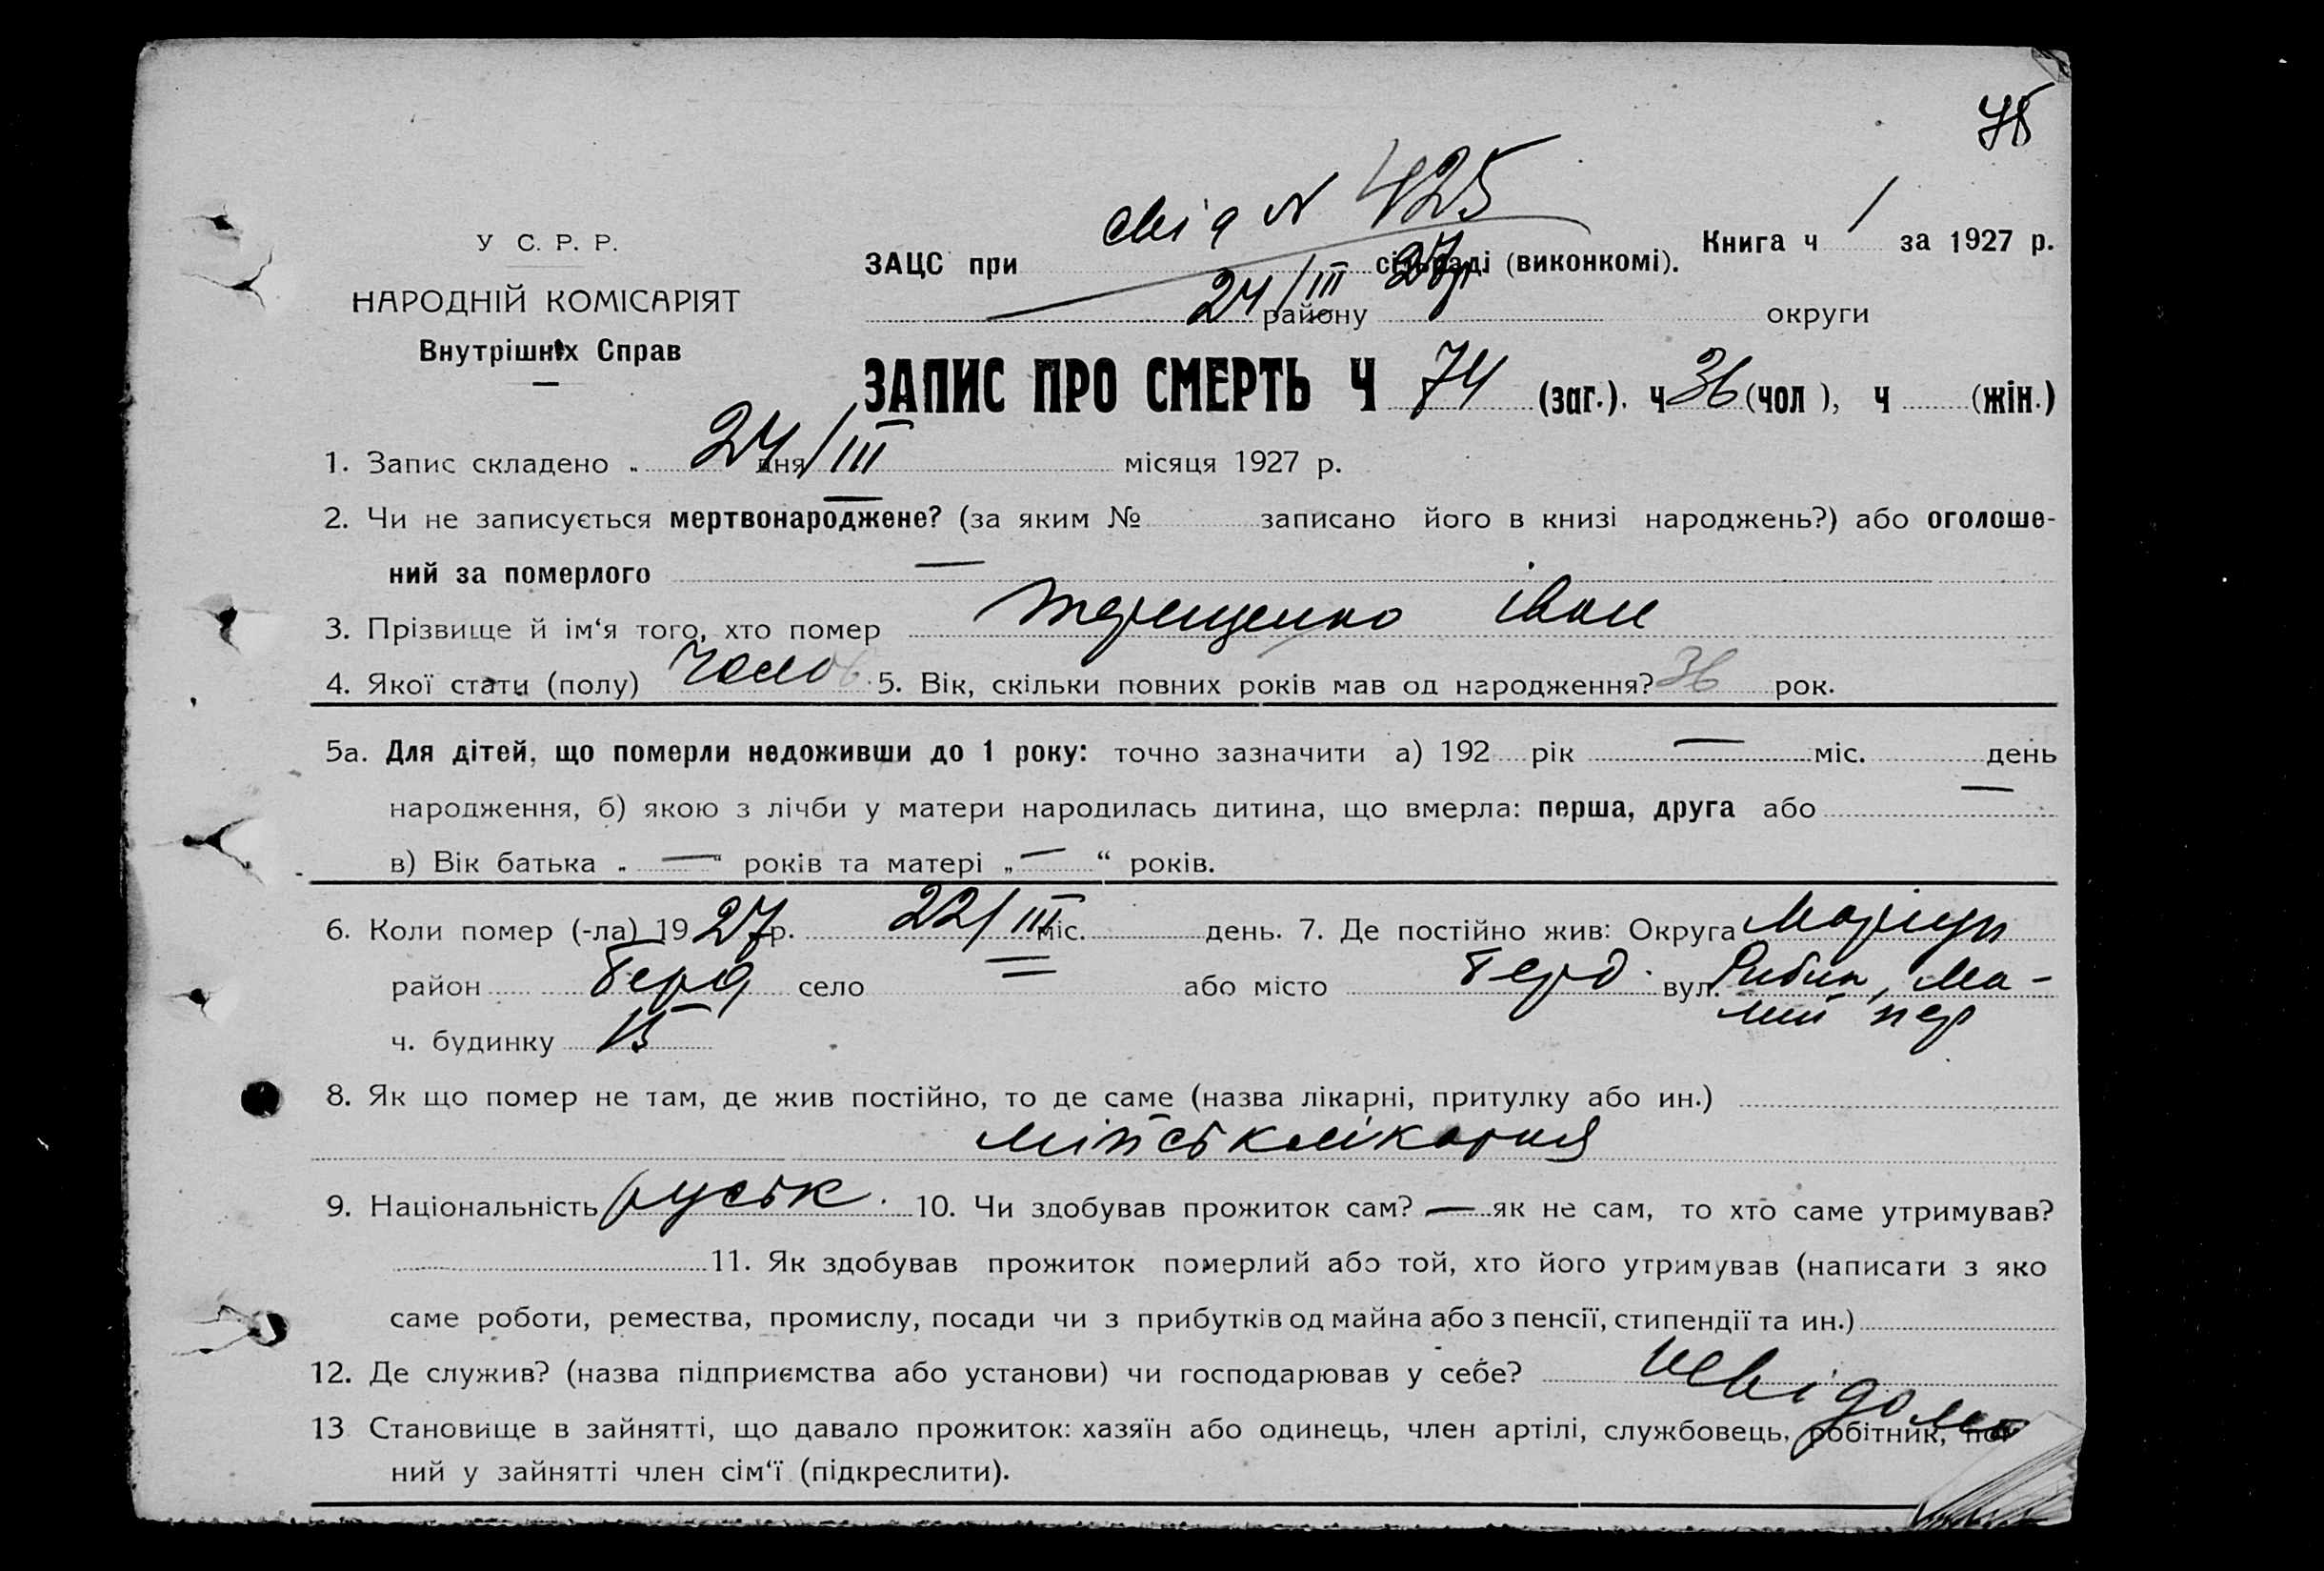 75
свід N 425
У С. Р. Р.
НАРОДНІЙ КОМІСАРІЯТ
Внутрішніх Справ
Книга ч 1 за 1927 р.
ЗАЦС при сільраді (виконкомі).
24/III 27р.
району округи
ЗАПИС ПРО СМЕРТЬ Ч 74 (заг.). ч 36 (чол ), ч (жін.)
1. Запис складено „ 24 дня/III місяця 1927 р.
2. Чи не записується мертвонароджене? (за яким № записано його в книзі народжень?) або оголоше-
ний за померлого —
3. Прізвище й ім‘я того, хто помер Терещенко Іван
4. Якої стати (полу) Чолов 5. Вік, скільки повних років мав од народження? 36 рок.
5а. Для дітей, що померли недоживши до 1 року: точно зазначити а) 192 рік — міс. день
народження, б) якою з лічби у матери народилась дитина, що вмерла: перша, друга або —
в) Вік батька „ — “ років та матері „ — “ років.
6. Коли помер (-ла) 1927 р. 22/III міс. день. 7. Де постійно жив: Округа Маріуп
район Берд село = або місто Берд. вул. Рибна, Ма-
лий пер
ч. будинку 15
8. Як що помер не там, де жив постійно, то де саме (назва лікарні, притулку або ин.)
міськлікарня
9. Національність руськ. 10. Чи здобував прожиток сам? — як не сам, то хто саме утримував?
11. Як здобував прожиток померлий або той, хто його утримував (написати з яко
саме роботи, ремества, промислу, посади чи з прибутків од майна або з пенсії, стипендії та ин.)
12. Де служив? (назва підприємства або установи) чи господарював у себе? невідомо
13 Становище в зайнятті, що давало прожиток: хазяїн або одинець, член артілі, службовець, робітник,
ний у зайнятті член сім‘ї (підкреслити).